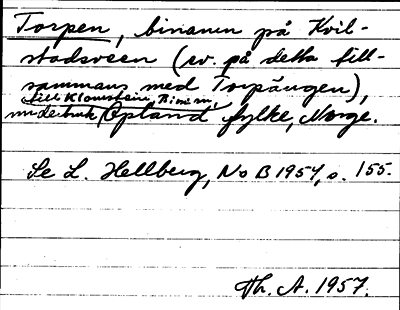 Torpen, binamn på Kvil-
stadsveen (sv. på detta till-
sammans med Torpängen),
till Klomstein, Bimm,
underbruk, Opland fylke, Norge.
Se L. Hellberg, NoB 1954, s. 155.
Th. A. 1957.